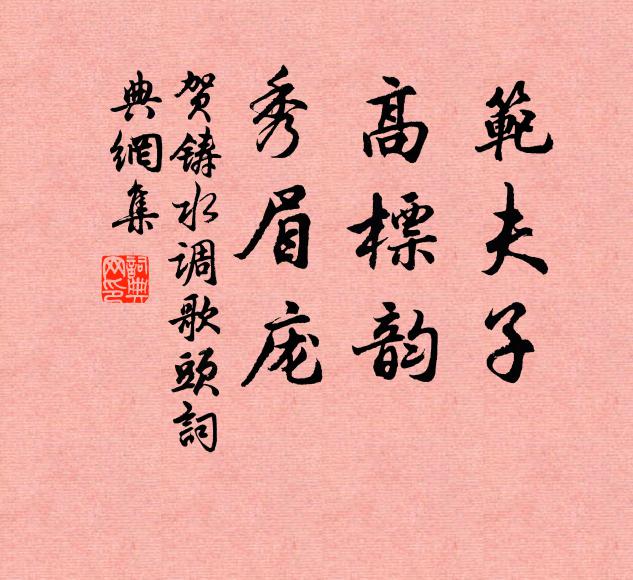 範夫子
高標韵
秀眉庞
贺鑄水调歌頭詞
典網集
詞典
网印